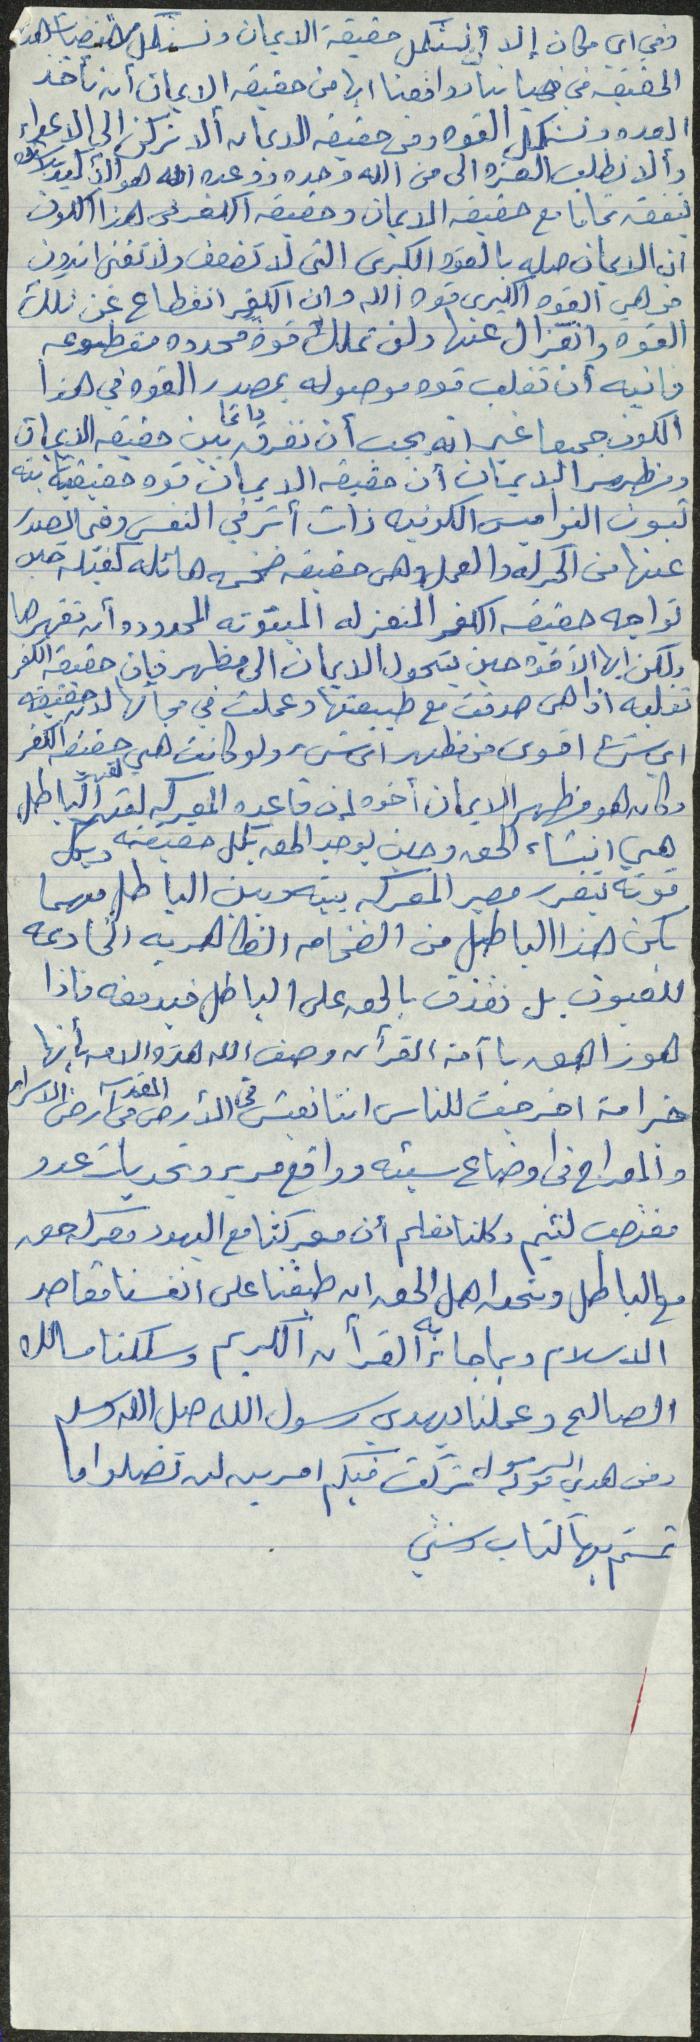 وفي اي مكان إلا أن نستكمل حقيقة الايمان ونستكمل مقتضيات هذه
الحقيقة في حياتنا وواقعنا ايضا من حقيقة الايمان أن نأخذ
العده ونستكمل القوه ومن حقيقه الايمان ألا نركن الى الاعداء
وألا نطلب العزه الى من الله وحده ووعده الله هو الأكيد
يتفق تماما مع حقيقه الايمان وحقيقه الكفر في هذا الكون
ان الايمان صله بالقوه الكبرى التي لا تضعف ولا تفنى
هي القوه الكبرى قوه الله وان الكفر انقطاع عن تلك
القوه وانعزال عنها ولن تملك قوة محدوده مقطوعه
فانيه أن تغلب قوه موصوله بمصدر القوه في هذا
الكون جميعا غير انه يجب أن نفرق دائما بين حقيقه الايمان
ومظهر الايمان أن حقيقه الايمان قوه حقيقيه ثابته
ثبوت النواميس الكونيه ذات أثر في النفس وفيما يصدر
عنها من الحركه والعمل وهي حقيقه ضخمه هائله كفيله حين
تواجه حقيقه الكفر المنعزله المبتوته المحدوده أن تقهرها
ولكن ايها الأخوه حين يتحول الايمان الى مظهر فإن حقيقه الكفر
تغلبه اذا هي صدقت مع طبيعتها وعملت في مجالها لان حقيقه
اي شئ اقوى من مظهر اي شئ ولو كانت هي حقيقه الكفر
وكان هو مظهر الايمان أخوه إن قاعده المعركه لقهر الباطل
هي انشاء الحق وحين يوجد الحق بكل حقيقته وبكل
قوته يتقرر مصير المعركه بينه وبين الباطل مهما
يكن هذا الباطل من الضخامه الظاهريه الخادعه
للعيون بل نقذف بالحق على الباطل فيدمغه فاذا
هو زاهق يا أمة القرآن وصف الله هذه الامه بأنها
خير امة اخرجت للناس اننا نعيش في الأرض المقدسه في أرض الاسراء
والمعراج في اوضاع سيئه وواقع مرير وتحديات عدو
مغتصب لئيم وكلنا نعلم أن معركتنا مع اليهود معركه حق
مع الباطل ونحن اهل الحق ان طبقنا على انفسنا مقاصد
الاسلام وبما جاء به القرأن الكريم وسلكنا مسالك
الصالح وعملنا بهدي رسول الله صلى الله وسلم
ومن هدي الرسول قوله تركت فيكم امرين لن تضلوا ما
تمستم بهما كتاب وسنتي